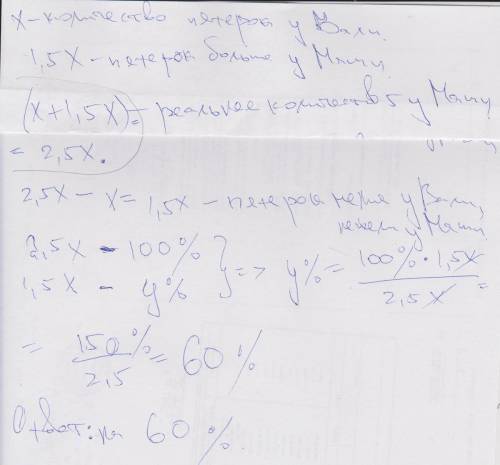 x - количество пятерок у Вали.
1,5x - пятерок больше у Маши
(x+1,5x) = реальное количество 5 у Маши
= 2,5x.
2,5x - x = 1,5x - пятерок меньше у Вали,
нежели у Маши
2,5x - 100%
1,5x - y%
} => y% = 100% · 1,5x / 2,5x =
= 150% / 2,5 = 60%
Ответ: на 60%.